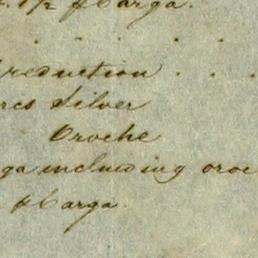 1/2 ⅌ Carga.
reduction . . .
Silver
Oroche
ga including oroc
⅌ Carga.